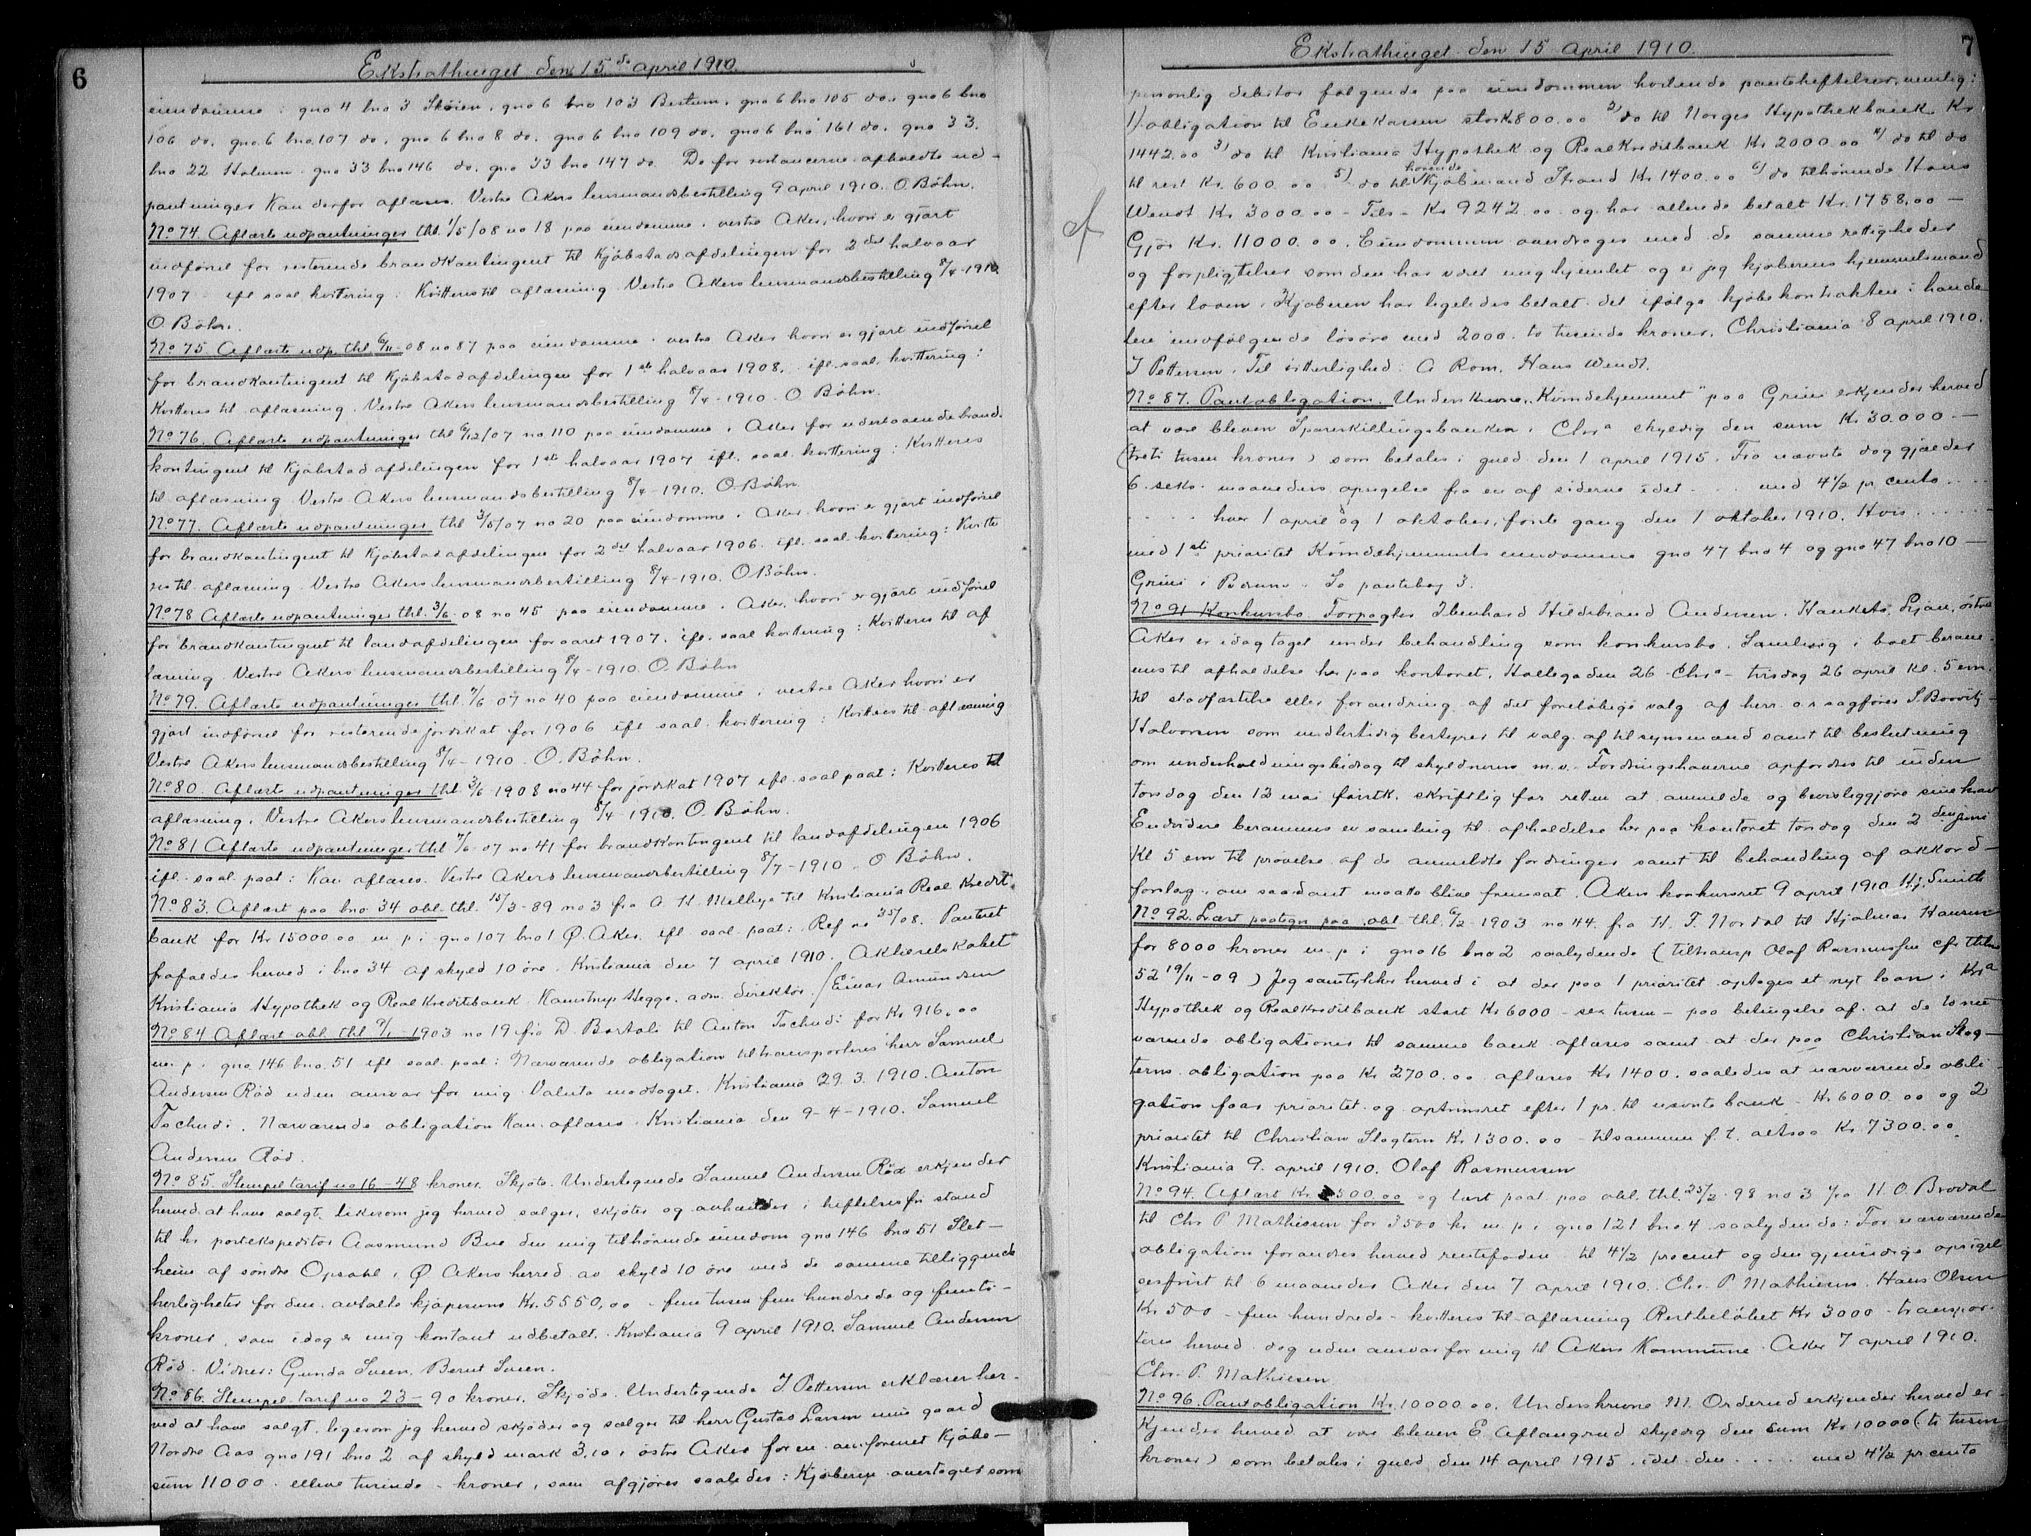 6
Ekstrathinget den 15de april 1910.
eiendomme: gno 4 bno 3 Skøien, gno 6 bno 103 Bestum, gno 6 bno 105 do, gno 6 bno
106 do, gno 6 bno 107 do, gno 6 bno 8 do, gno 6 bno 109 do, gno 6 bno 161 do, gno 33
bno 22 Holmen, gno 33 bno 146 do, gno 33 bno 147 do. De for restancerne afholdte ud-
pantninger kan derfor aflæses. Vestre Akers lensmandsbestilling 9 april 1910. O. Bøhn.
No 74. Aflæste udpantninger thl. 1/5/08 no 18 paa eiendomme i vestre Aker, hvori er gjort
indførsel for resterende brandkontingent til Kjøbstadsafdelingen for 2det halvaar
1907 ifl saal. kvittering: Kvitteres til aflæsning. Vestre Akers lensmandsbestilling 8/4-1910
O Bøhn.
No 75 Aflæste udp. thl. 6/11-08 no 87 paa eiendomme i vestre Aker hvori er gjort indførsel
for brandkontingent til Kjøbstadafdelingen for 1ste halvaar 1908, ifl. saal. kvittering:
Kvitteres til aflæsning. Vestre Akers lensmandsbestilling 8/4-1910. O Bøhn.
No 76. Aflæste udpantninger thl 6/12/07 no 110 paa eiendomme i Aker for udestaaende brand-
kontingent til Kjøbstadafdelingen for 1ste halvaar 1907 ifl. saal. kvittering: Kvitteres
til aflæsning. Vestre Akers lensmandsbestilling 8/4-1910. O. Bøhn
No 77. Aflæste udpantninger thl 3/5/07 no 20 paa eiendomme i Aker hvori er gjort indførsel
for brandkontingent til Kjøbstadafdelingen for 2det halvaar 1906. ifl. saal. kvittering: Kvitte
res til aflæsning. Vestre Akers lensmandsbestilling 8/4-1910. O Bøhn.
No 78 Aflæste udpantninger thl. 3/6-08 no 45 paa eiendomme i Aker, hvori er gjort indførsel
for brandkontingent til landafdelingen for aaret 1907. ifl. saal kvittering: Kvitteres til af
læsning. Vestre Akers lensmandsbestilling 8/4-1910. O. Bøhn
No 79. Aflæste udpantninger thl. 7/6-07 no 40 paa eiendomme i vestre Aker hvori er
gjort indførsel for resterende jordskat for 1906 ifl saal. kvittering: Kvitteres til aflæsning
Vestre Akers lensmandsbestilling 8/4-1910. O. Bøhn.
No 80. Aflæste udpantninger thl. 3/6 1908 no 44 for jordskat 1907 ifl. saal paat: Kvitteres til
aflæsning. Vestre Akers lensmandsbestilling 8/4-1910. O. Bøhn.
No 81 Aflæste udpantninger thl 7/6-07 no 41 for brandkontingent til landafdelingen 1906
ifl. saal. paat: Kan aflæses. Vestre Akers lensmandsbestilling 8/7-1910. O Bøhn.
No 83. Aflæst paa bno 34 obl. thl. 15/3-89 no 3 fra O. H. Melbye til Kristiania Real Kredit-
bank for Kr 15000.00 m. p. i gno 107 bno 1 Ø. Aker. ifl. saal. paat: Ref no 35/08. Pantet
frafaldes herved i bno 34 af skyld 10 øre. Kristiania den 7 april 1910. Aktieselskabet
Kristiania Hypothek og Realkreditbank. Kamstrup Hegge. adm. direktør. / Einar Amundsen
No 84 Aflæst obl. thl. 9/1-1903 no 19 fra D. Bartoli til Anton Tschudi for Kr 916,00
m. p. i gno 146 bno 51 ifl saal. paat: Nærværende obligation tiltransporteres herr Samuel
Andersen Rød uden ansvar for mig. Valuta modtaget. Kristiania 29.3.1910. Anton
Tschudi. Nærværende obligation kan aflæses. Kristiania den 9-4-1910. Samuel
Andersen Rød.
No 85. Stempel tarif no 16-48 kroner. Skjøte. Undertegnede Samuel Andersen Rød erkjender
herved at have solgt, likesom jeg herved sælger, skjøter og avhænder i heftelsesfri stand
til hr. portekspeditør Aasmund Bue den mig tilhørende eiendom gno 146 bno 51 Slet-
heim af søndre Opsahl i Ø. Akers herred av skyld 10 øre med de samme tilliggende
herligheter for den avtalte kjøpesum Kr. 5550,00 - fem tusen fem hundrede og femti-
kroner, som idag er mig kontant udbetalt. Kristiania 9 april 1910. Samuel Andersen
Rød. Vidner: Gunda Sveen. Bernt Sveen.
No 86. Stempel tarif no 23-90 kroner. Skjøde. Undertegnede I Pettersen erklærer her-
ved at have solgt, ligesom jeg herved skjøder og sælger til herr Gustav Larsen min gaard
Nordre Aas gno 191 bno 2 af skyld mark 3,10 i østre Aker for en omforenet kjøbe-
sum 11000 - elleve tusinde - kroner, som afgjøres saaledes: Kjøberen overtager som
7
Ekstrathinget den 15 april 1910.
personlig debitor følgende paa eiendommen hvilende pantsheftelser, nemlig:
1) obligation til Enkekassen stor k 800.00 2) do til Norges Hypothekbank Kr
1442.00 3) do til Kristiania Hypothek og Realkreditbank Kr 2000.00 4) do til do
til rest Kr. 600.00 5) do til hørende Kjøbmand Strand Kr 1400.00 6) do tilhørende Hans
Wendt Kr 3000.00 - Tils - Kr 9242.00 og har allerede betalt Kr. 1758,00 -
Gjør Kr. 11000.00. Eiendommen overdrages med de samme rettigheder
og forpligtelser som den har været mig hjemlet og er jeg kjøberens hjemmelsmand
efter loven. Kjøberen har ligeledes betalt det ifølge kjøbekontrakten i hande
len medfølgende løsøre med 2000. to tusinde kroner. Christiania 8 april 1910.
I Pettersen. Til vitterlighed: A Rom. Hans Wendt.
cf
No 87. Pantobligation. Underskrevne "Kvindehjemmet" paa Grini erkjender herved
at være bleven Spareskillingsbanken i Chra skyldig den sum Kr 30.000.-
(treti tusen kroner) som betales i guld den 1 april 1915. Fra nævnte dag gjælder
6. seks. maaneders opsigelse fra en af siderne idet .... med 4 1/2 pr cento ....
.... hver 1 april og 1 oktober, første gang den 1 oktober 1910. Hvis ......
med 1ste prioritet Kvindehjemmets eiendomme gno 47 bno 4 og gno 47 bno 10 -
Grini i Bærum. Se pantebog 3.
No 91 Konkursbo Forpagter Ibenhard Hildebrand Andersen. Hauketo, Ljan, østre
Aker er idag taget under behandling som konkursbo. Samling i boet beram-
mes til afholdelse her paa kontoret. Møllegaden 26 Chra tirsdag 26 april kl. 5 em.
til stadfæstelse eller forandring af det foreløbige valg af herr o.r.sagfører S. Borvitz
Halvorsen som midlertidig bestyrer til valg af tilsynsmænd samt til beslutning
om underholdningsbidrag til skyldneren m.v. Fordringshaverne opfordres til inden
torsdag den 12 mai førstk. skriftlig for retten at anmelde og bevisliggjøre sine krav
Endvidere berammes en samling til afholdelse her paa kontoret torsdag den 2den juni
kl 5 em til prøvelse af de anmeldte fordringer samt til behandling af akkord-
forslag, om saadant maatte blive fremsat. Akers konkursret 9 april 1910. Hj. Smith
No 92. Læst paategn paa obl thl. 6/2-1903 no 44. fra H. T. Nordal til Hjalmar Hansen
for 8000 kroner m.p. i gno 16 bno 2 saalydende (tiltransp Olaf Rasmussen cfr thl no
52 19/11-09) Jeg samtykker herved i at der paa 1 prioritet optages et nyt laan i Kra
Hypothek og Realkreditbank stort Kr 6000 - sex tusen - paa betingelse af at de to nu
værende obligationer til samme bank aflæses samt at der paa Christian Slog-
terns obligation paa Kr 2700.00 aflæses Kr 1400. saaledes at nærværende obli-
gation faar prioritet og optrinsret efter 1 pr. til nævnte bank - Kr. 6000.00 og 2
prioritet til Christian Slogtern Kr 1300.00 - tilsammen f.t. altsaa Kr. 7300.00
Kristiania 9. april 1910. Olaf Rasmussen
No 94. Aflæst Kr. 500.00 og læst paat paa obl. thl. 25/2-98 no 3 fra H. O. Brodal
til Chr P Mathiesen for 3500 kr m. p. i gno 121 bno 4 saalydende: For nærværende
obligation forandres herved rentefoden til 4 1/2 procent og den gjensidige opsigel
sesfrist til 6 maaneder. Aker den 7 april 1910. Chr. P Mathiesen. Hans Olsen
Kr 500 - fem hundrede - kvitteres til aflæsning. Restbeløbet Kr 3000 - transpor-
teres herved dog uden ansvar for mig til Akers Kommune. Aker 7 april 1910.
Chr. P. Mathiesen
No 96. Pantobligation Kr. 10000.00. Underskrevne M. Orderud erkjender herved er-
kjender herved at være bleven E. Aflangrud skyldig den sum Kr 10000 (ti tusen
kroner) som betales i guld den 14 april 1915. idet den .... med 4 1/2 pr cento